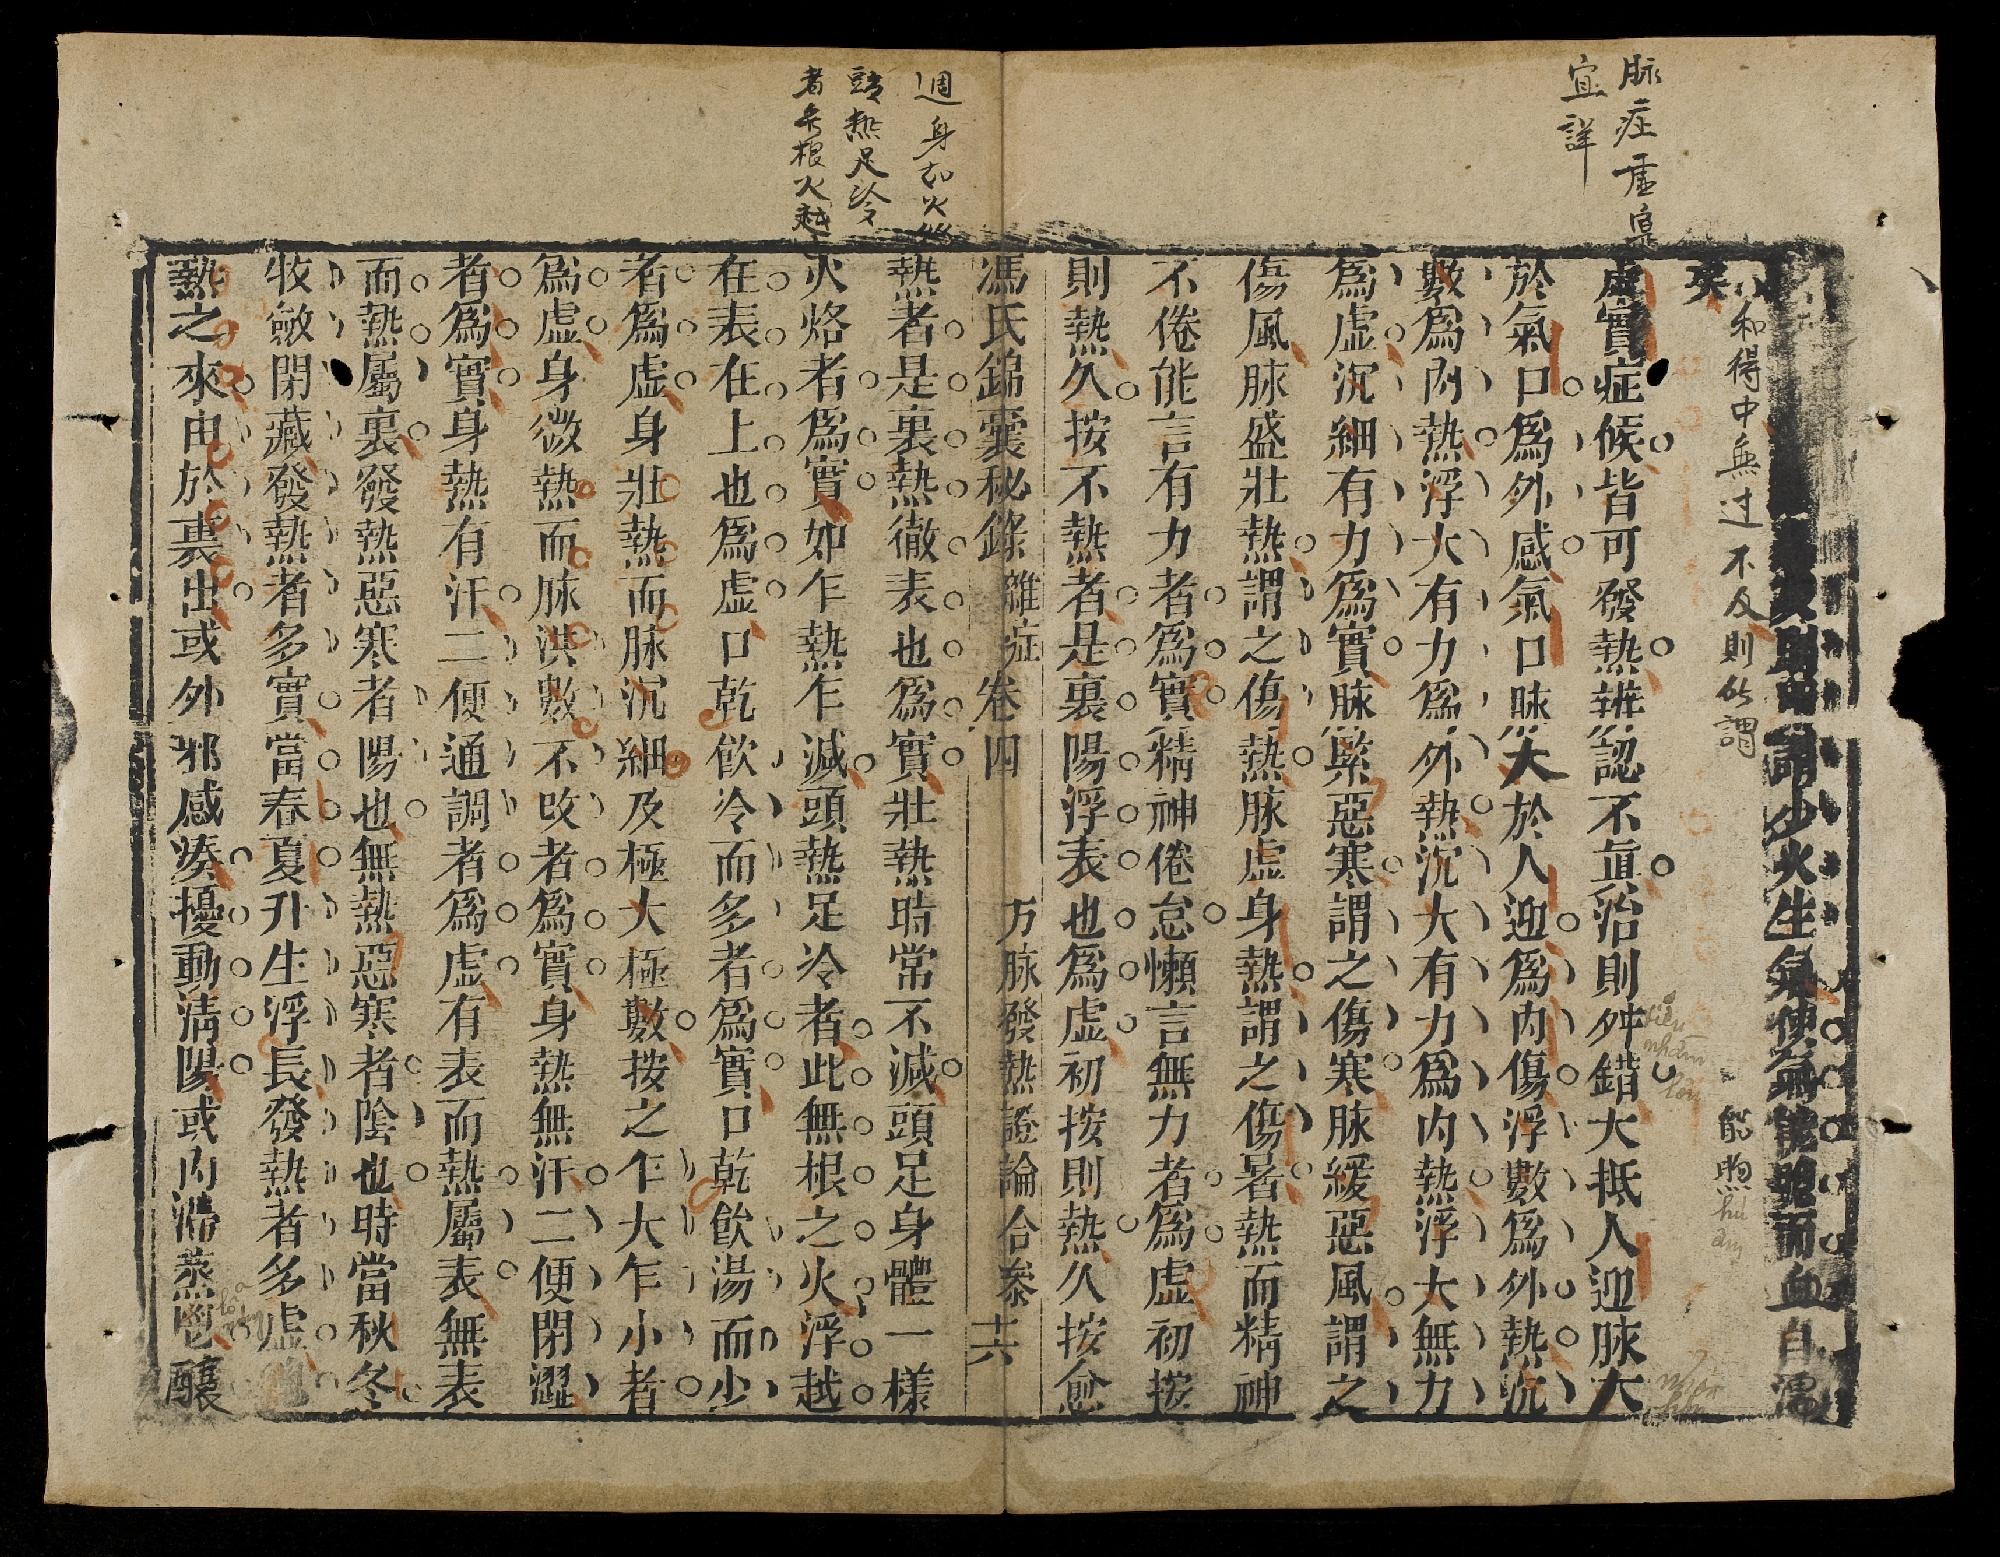 脉症虛實
宜詳
少火生氣使氣能飽而血自濡
矣
和得中無过不及則所謂
能煦
hú âm
虛實症候皆可發熱辨認不眞治則舛錯大抵人迎脉大
於氣口爲外感氣口脉大於人迎爲內傷浮數爲外熱沉
數爲內熱浮大有力爲外熱沉大有力爲內熱浮大無力
爲虛沉細有力爲實脉緊惡寒謂之傷寒脉緩惡風謂之
傷風脉盛壯熱謂之傷熱脉虛身熱謂之傷暑熱而精神
不倦能言有力者爲實精神倦怠懶言無力者爲虛初按
則熱久按不熱者是裏陽浮表也爲虛初按則熱久按愈
馮氏錦囊秘錄 雜症 卷四 方脉發熱證論合參 十六
週身如火
頭熱足冷
者無根火越
熱者是裏熱徹表也爲實壯熱時常不減頭足身體一樣
火烙者爲實如乍熱乍減頭熱足冷者此無根之火浮越
在表在上也爲虛口乾飮冷而多者爲實口乾飮湯而少
者爲虛身壯熱而脉沉細及極大極數按之乍大乍小者
爲虛身微熱而脉洪數不改者爲實身熱無汗二便閉澀
者爲實身熱有汗二便通調者爲虛有表而熱屬表無表
而熱屬裏發熱惡寒者陽也無熱惡寒者陰也時當秋冬
收斂閉藏發熱者多實當春夏升生浮長發熱者多虛
熱之來由於裏出或外邪感湊擾動清陽或內滯蒸鬯釀